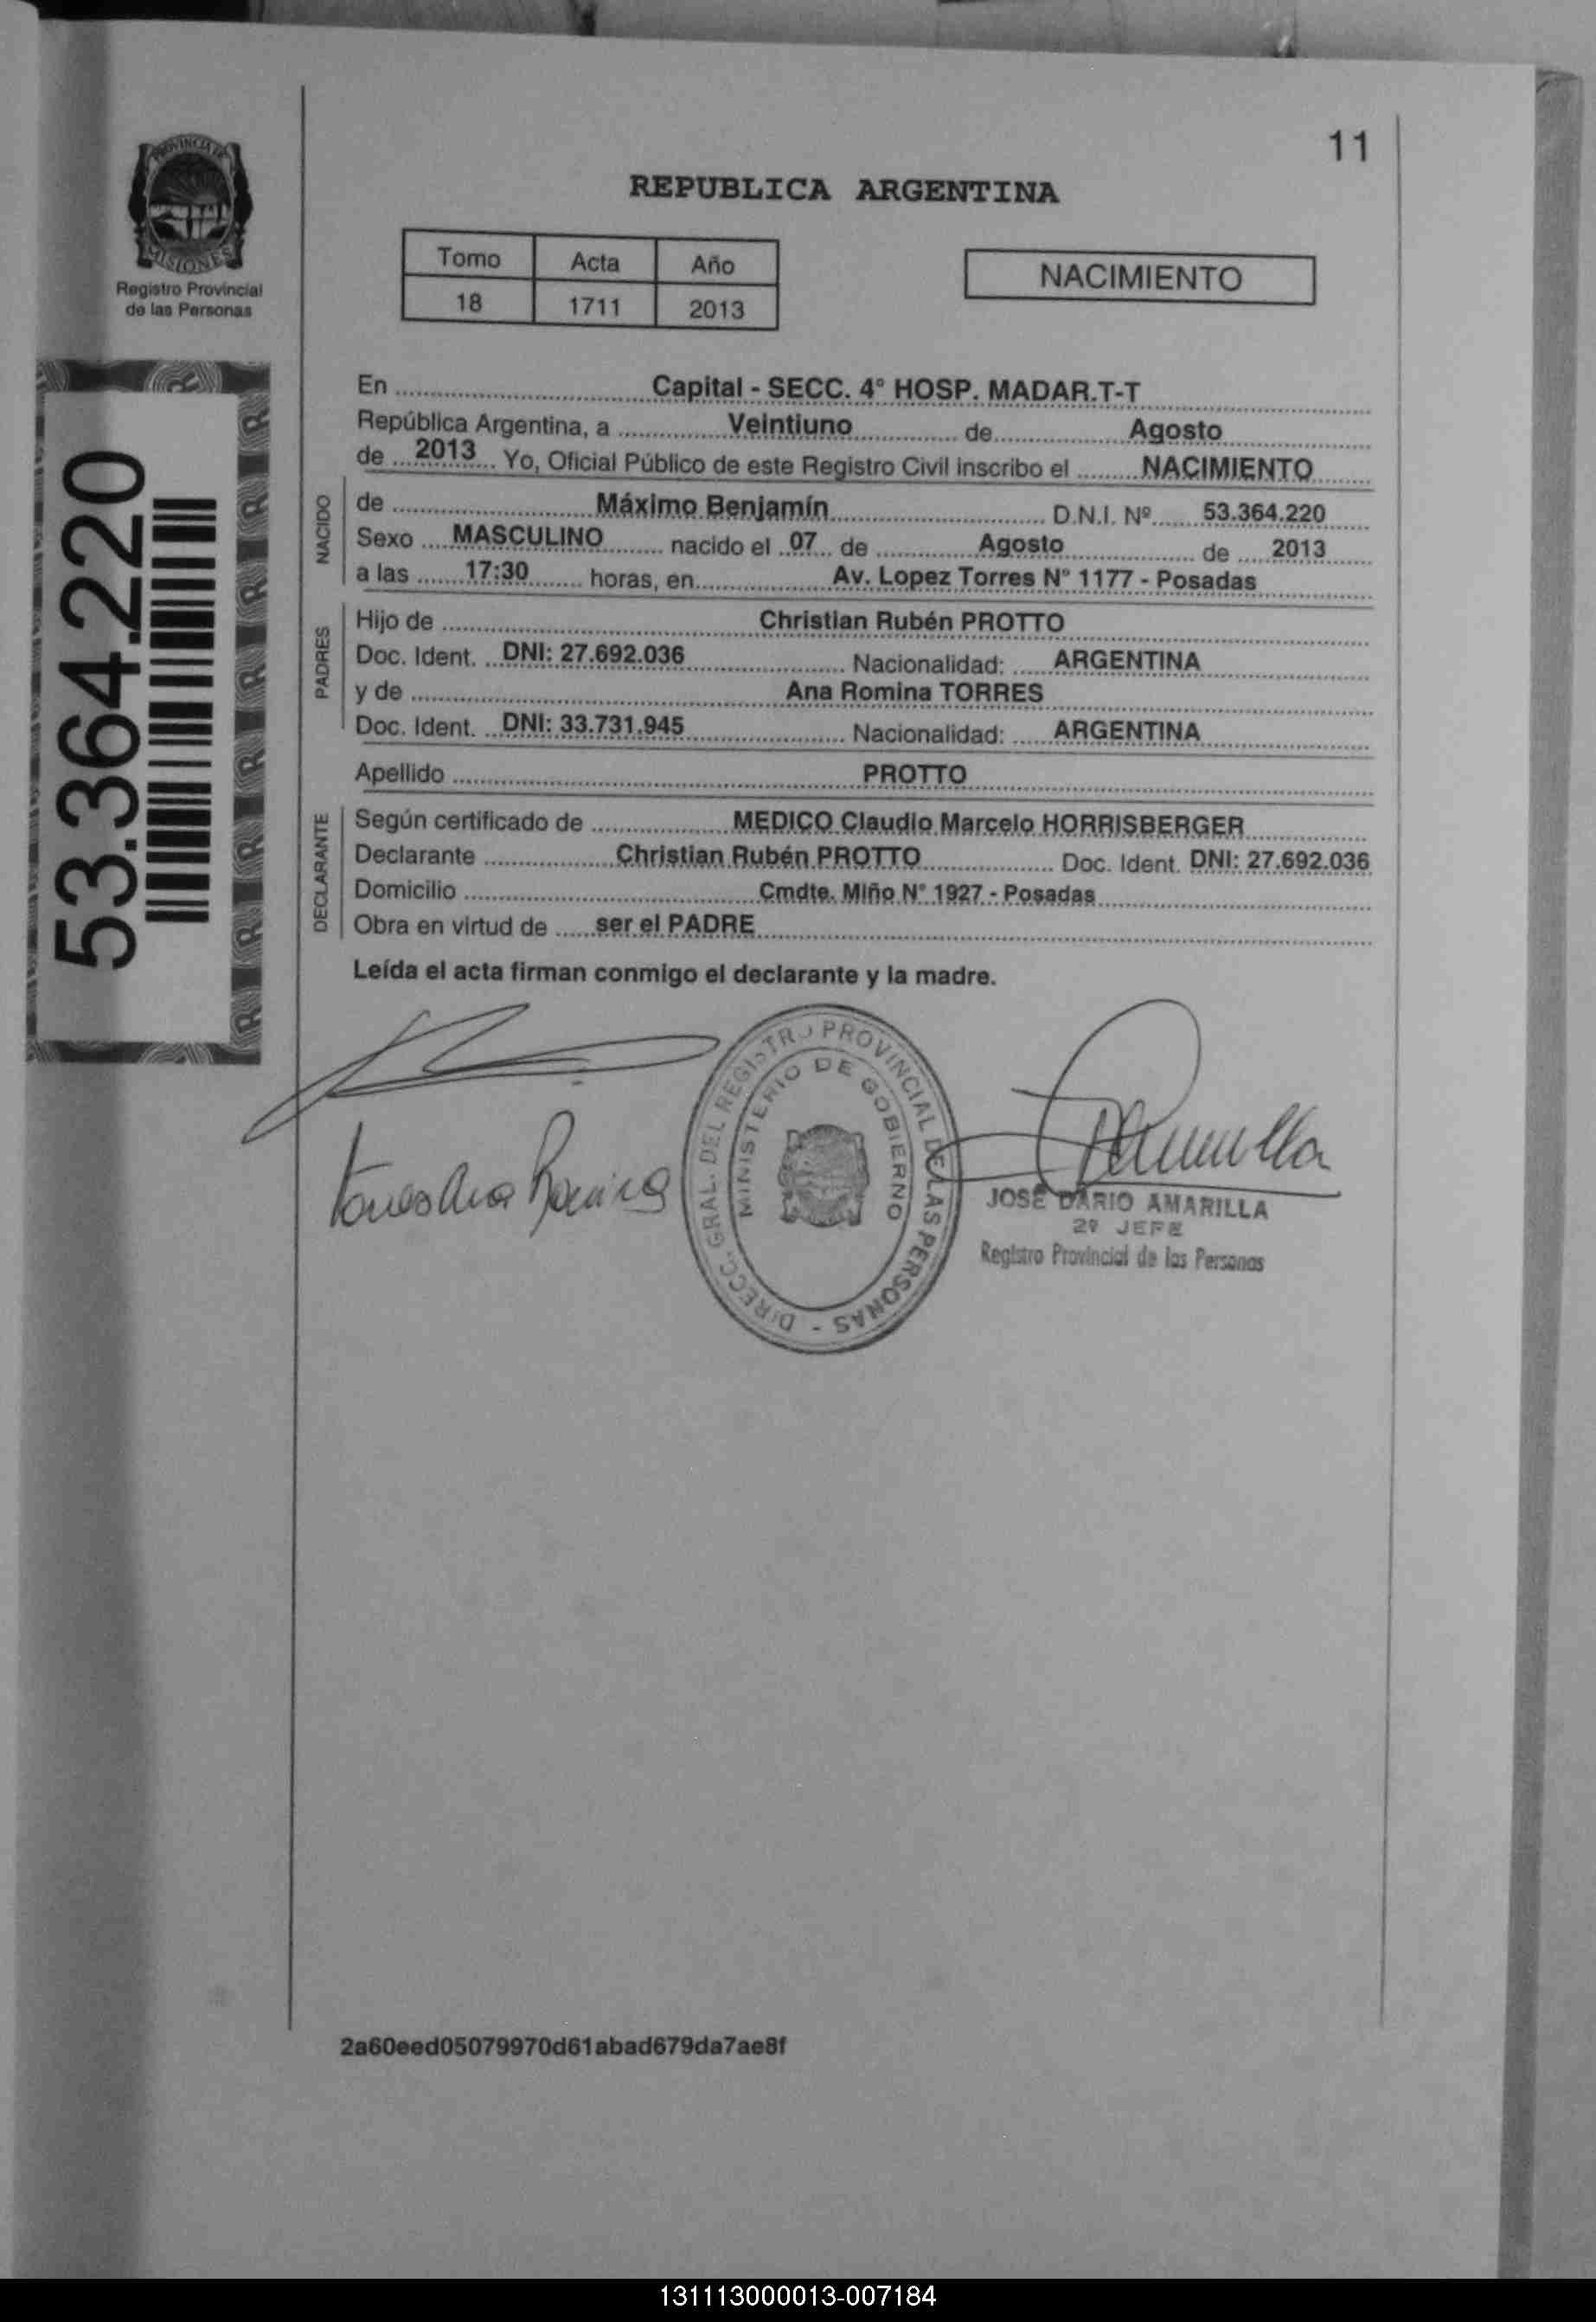 11
REPUBLICA ARGENTINA
PROVINCIA DE
MISIONES
Registro Provincial
de las Personas
Tomo Acta Año
18 1711 2013
NACIMIENTO
53.364.220
En Capital - SECC. 4° HOSP. MADAR.T-T
República Argentina, a Veintiuno de Agosto
de 2013 Yo, Oficial Público de este Registro Civil inscribo el NACIMIENTO
NACIDO
de Máximo Benjamín D.N.I. Nº 53.364.220
Sexo MASCULINO nacido el 07 de Agosto de 2013
a las 17:30 horas, en Av. Lopez Torres N° 1177 - Posadas
PADRES
Hijo de Christian Rubén PROTTO
Doc. Ident. DNI: 27.692.036 Nacionalidad: ARGENTINA
y de Ana Romina TORRES
Doc. Ident. DNI: 33.731.945 Nacionalidad: ARGENTINA
Apellido PROTTO
DECLARANTE
Según certificado de MEDICO Claudio Marcelo HORRISBERGER
Declarante Christian Rubén PROTTO Doc. Ident. DNI: 27.692.036
Domicilio Cmdte. Miño N° 1927 - Posadas
Obra en virtud de ser el PADRE
Leída el acta firman conmigo el declarante y la madre.
Torres Ana Romina
DIRECC. GRAL. DEL REGISTRO PROVINCIAL DE LAS PERSONAS -
MINISTERIO DE GOBIERNO
JOSÉ DARIO AMARILLA
2º JEFE
Registro Provincial de las Personas
2a60eed05079970d61abad679da7ae8f
131113000013-007184